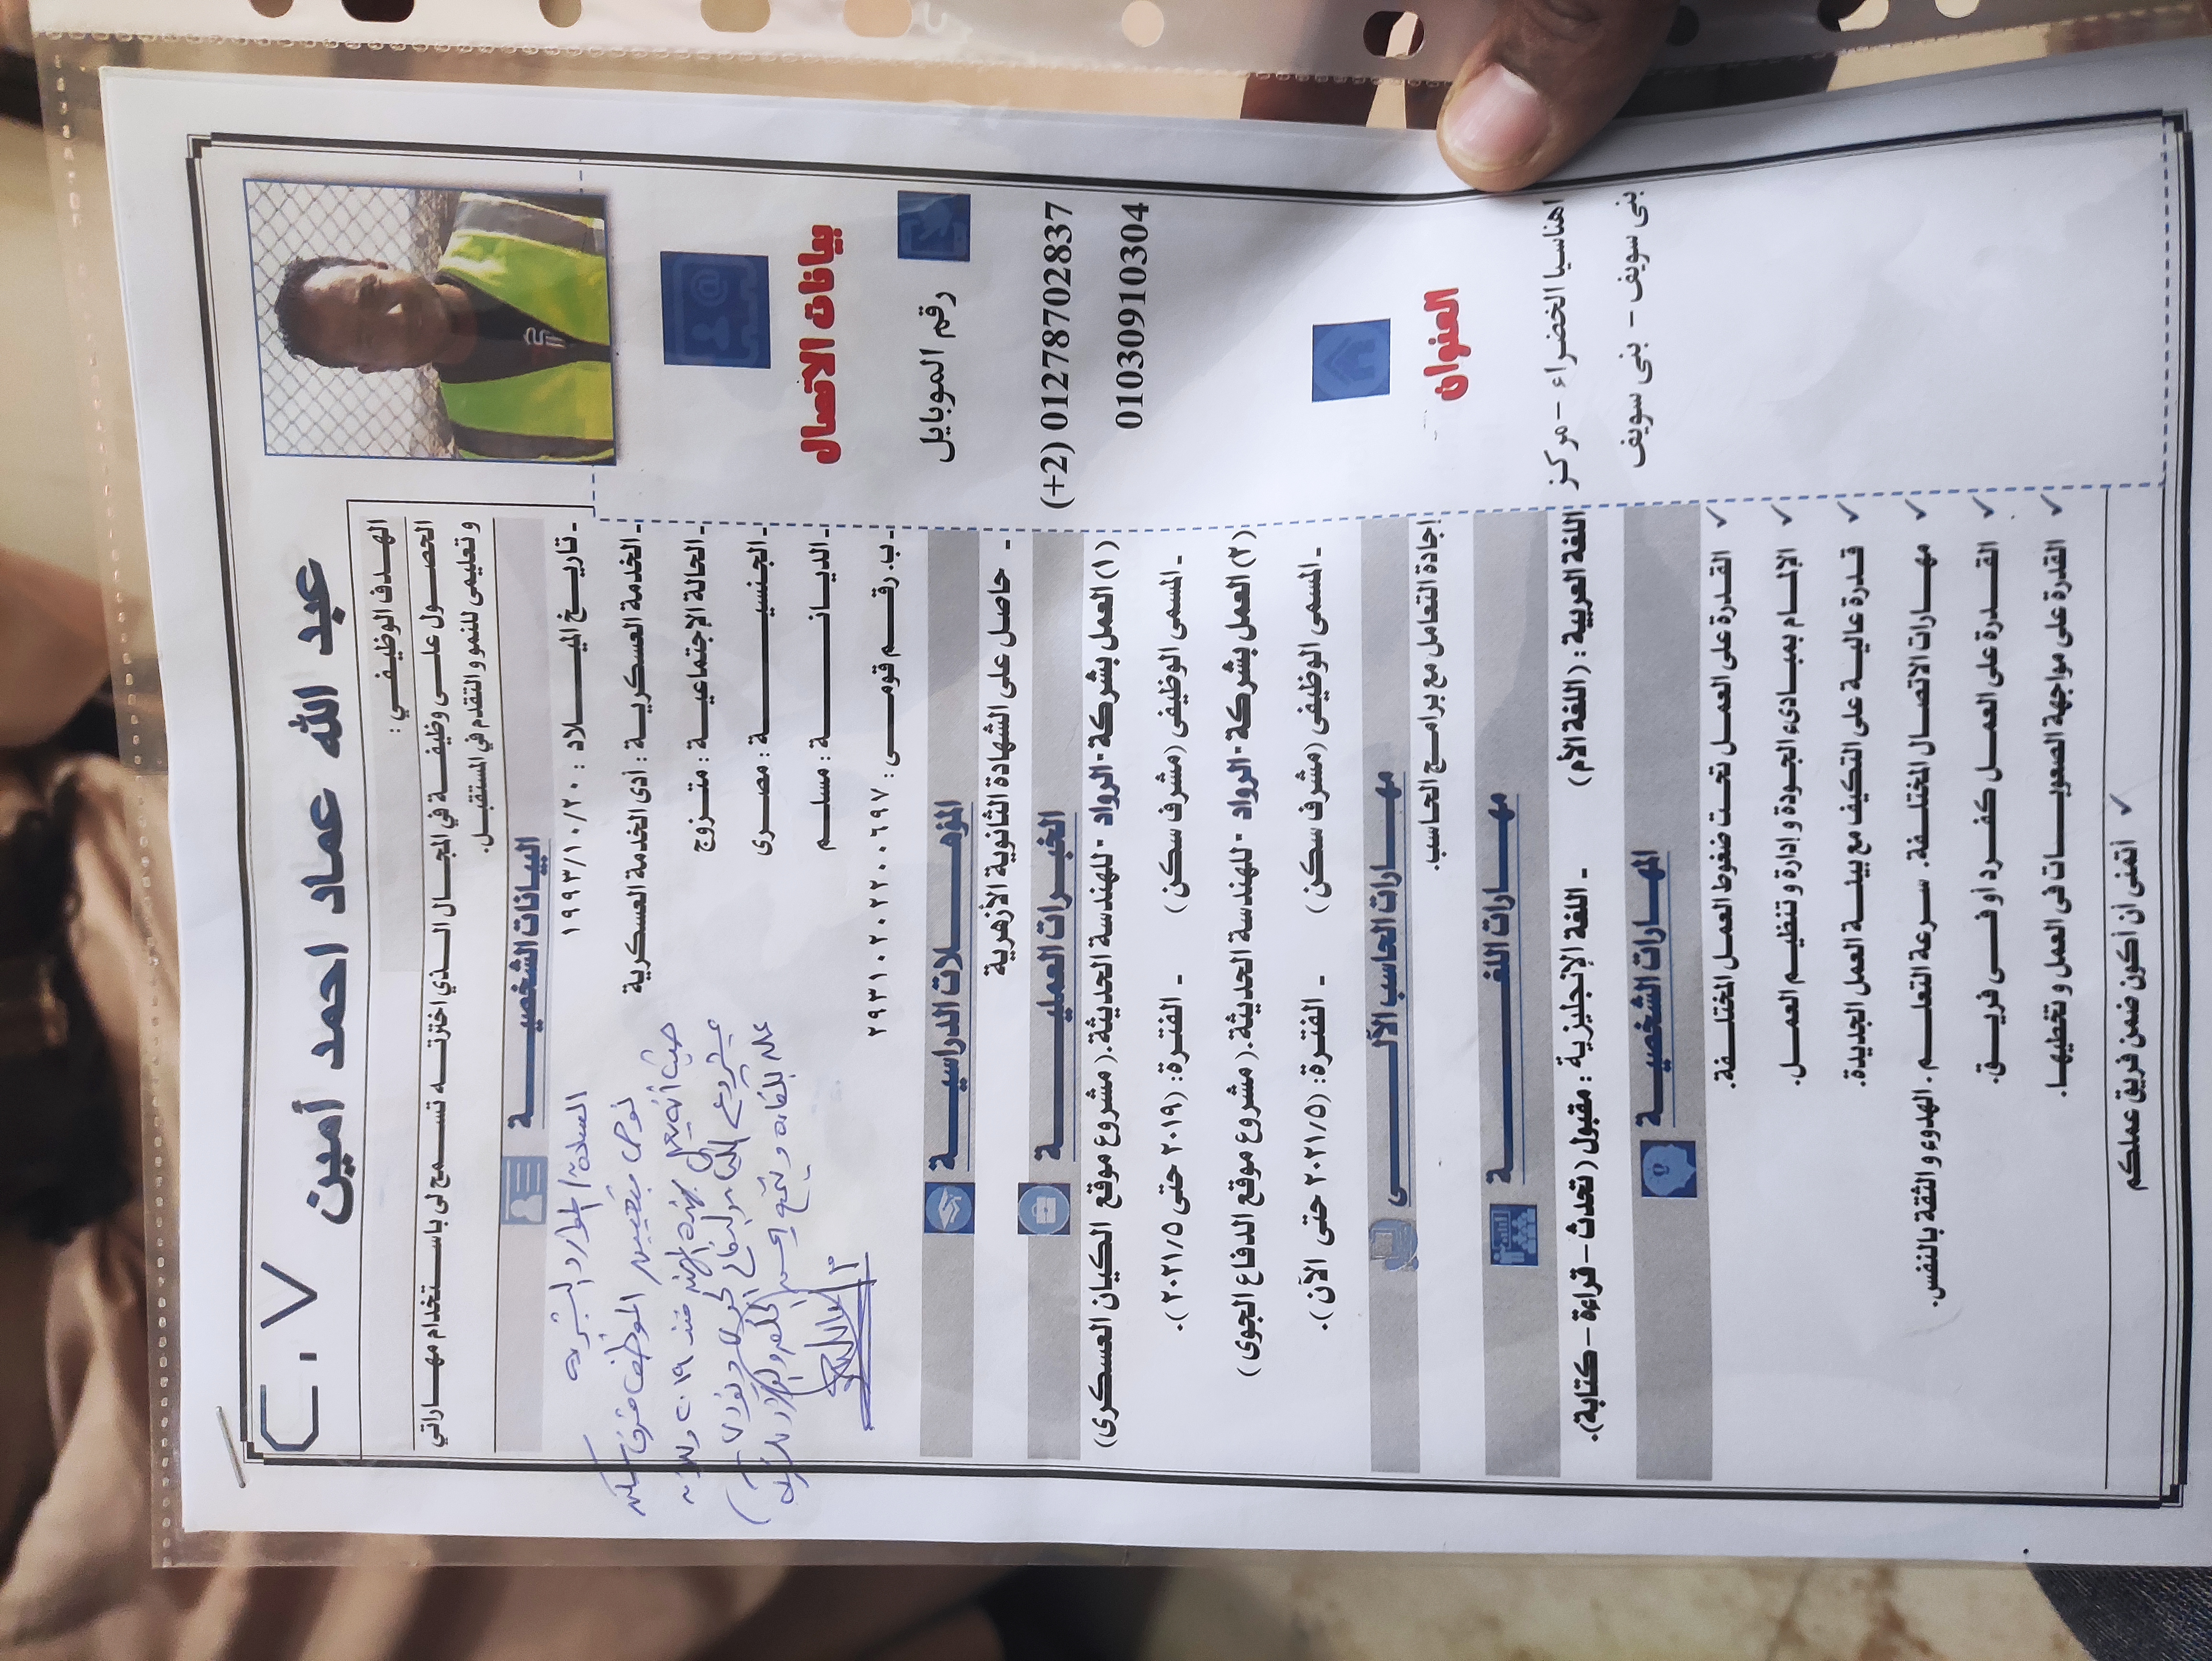 C.V
عبد الله عماد احمد أمين
الهدف الوظيفي :
الحصول على وظيفة في المجال الذي اخترته تسمح لى باستخدام مهاراتي
وتعليمى للنمو والتقدم في المستقبل.
البيانات الشخصية
- تاريخ الميلاد : ١٩٩٣/١٠/٢٠
- الخدمة العسكرية : أدى الخدمة العسكرية
- الحالة الإجتماعية : متزوج
- الجنسية : مصرى
- الديانة : مسلم
- ب. رقم قومى : ٢٩٣١٠٢٠٢٢٠٠٦٩٧
السادة / الموارد البشرية
نوصى بتعيين الموظف مشرف سكن
حيث أنه يعمل بهذه المهنة منذ ٢٠١٩
المؤهلات الدراسية
- حاصل على الشهادة الثانوية الأزهرية
الخبرات العملية
(١) العمل بشركة - الرواد - للهندسة الحديثة. (مشروع موقع الكيان العسكرى)
- المسمى الوظيفى (مشرف سكن) - الفترة: (٢٠١٩ حتى ٢٠٢١/٥).
(٢) العمل بشركة - الرواد - للهندسة الحديثة. (مشروع موقع الدفاع الجوى)
- المسمى الوظيفى (مشرف سكن) - الفترة: (٢٠٢١/٥ حتى الآن).
مهارات الحاسب الآلى
إجادة التعامل مع برامج الحاسب.
مهارات اللغة
اللغة العربية : (اللغة الأم) - اللغة الإنجليزية : مقبول (تحدث – قراءة – كتابة).
المهارات الشخصية
✓ القدرة على العمل تحت ضغوط العمل المختلفة.
✓ الإلمام بمبادىء الجودة وإدارة وتنظيم العمل.
✓ قدرة عالية على التكيف مع بيئة العمل الجديدة.
✓ مهارات الاتصال المختلفة. سرعة التعلم . الهدوء والثقة بالنفس.
✓ القدرة على العمل كفرد أو فى فريق.
✓ القدرة على مواجهة الصعوبات فى العمل وتخطيها.
✓ أتمنى أن أكون ضمن فريق عملكم
بيانات الاتصال
رقم الموبايل
(+2) 01278702837
01030910304
العنوان
اهناسيا الخضراء – مركز
بنى سويف – بنى سويف